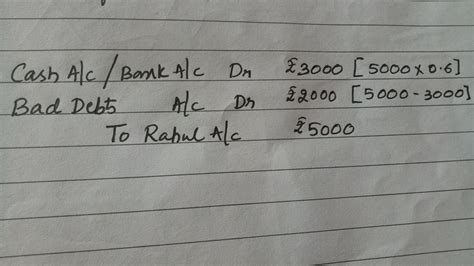 Cash A/c / Bank A/c Dr ₹3000 [5000 x 0.6]
Bad Debts A/c Dr ₹2000 [5000 - 3000]
To Rahul A/c ₹5000